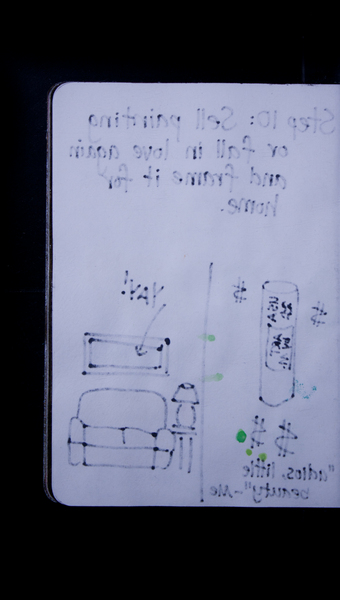 Step 10: Sell painting
or fall in love again
and frame it for
home.
YAY!
$
$
USA
ART
$ $
"adios, little
beauty" -Me